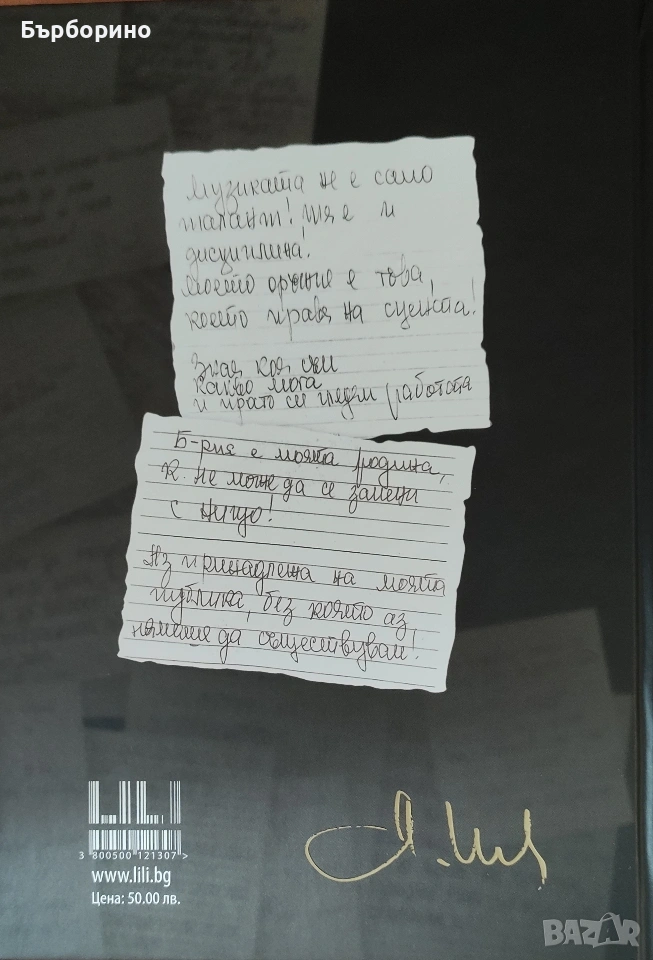 Бърборино
Музиката не е само
талант! Тя е и
дисциплина!
Моето оръжие е това,
което правя на сцената!
Зная коя съм
какво мога
и прато си гледам работата
Б-рия е моята родина,
к. не може да се замени
с нищо!
Аз принадлежа на моята
публика, без която аз
нямаше да съществувам!
LILI
3 800500 121307 >
www.lili.bg
Цена: 50.00 лв.
BAZAR